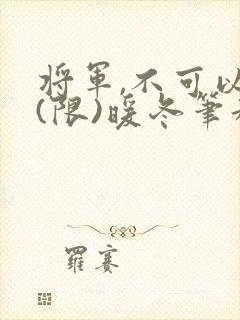 將軍,不可以
(限)暖冬筆
羅賽